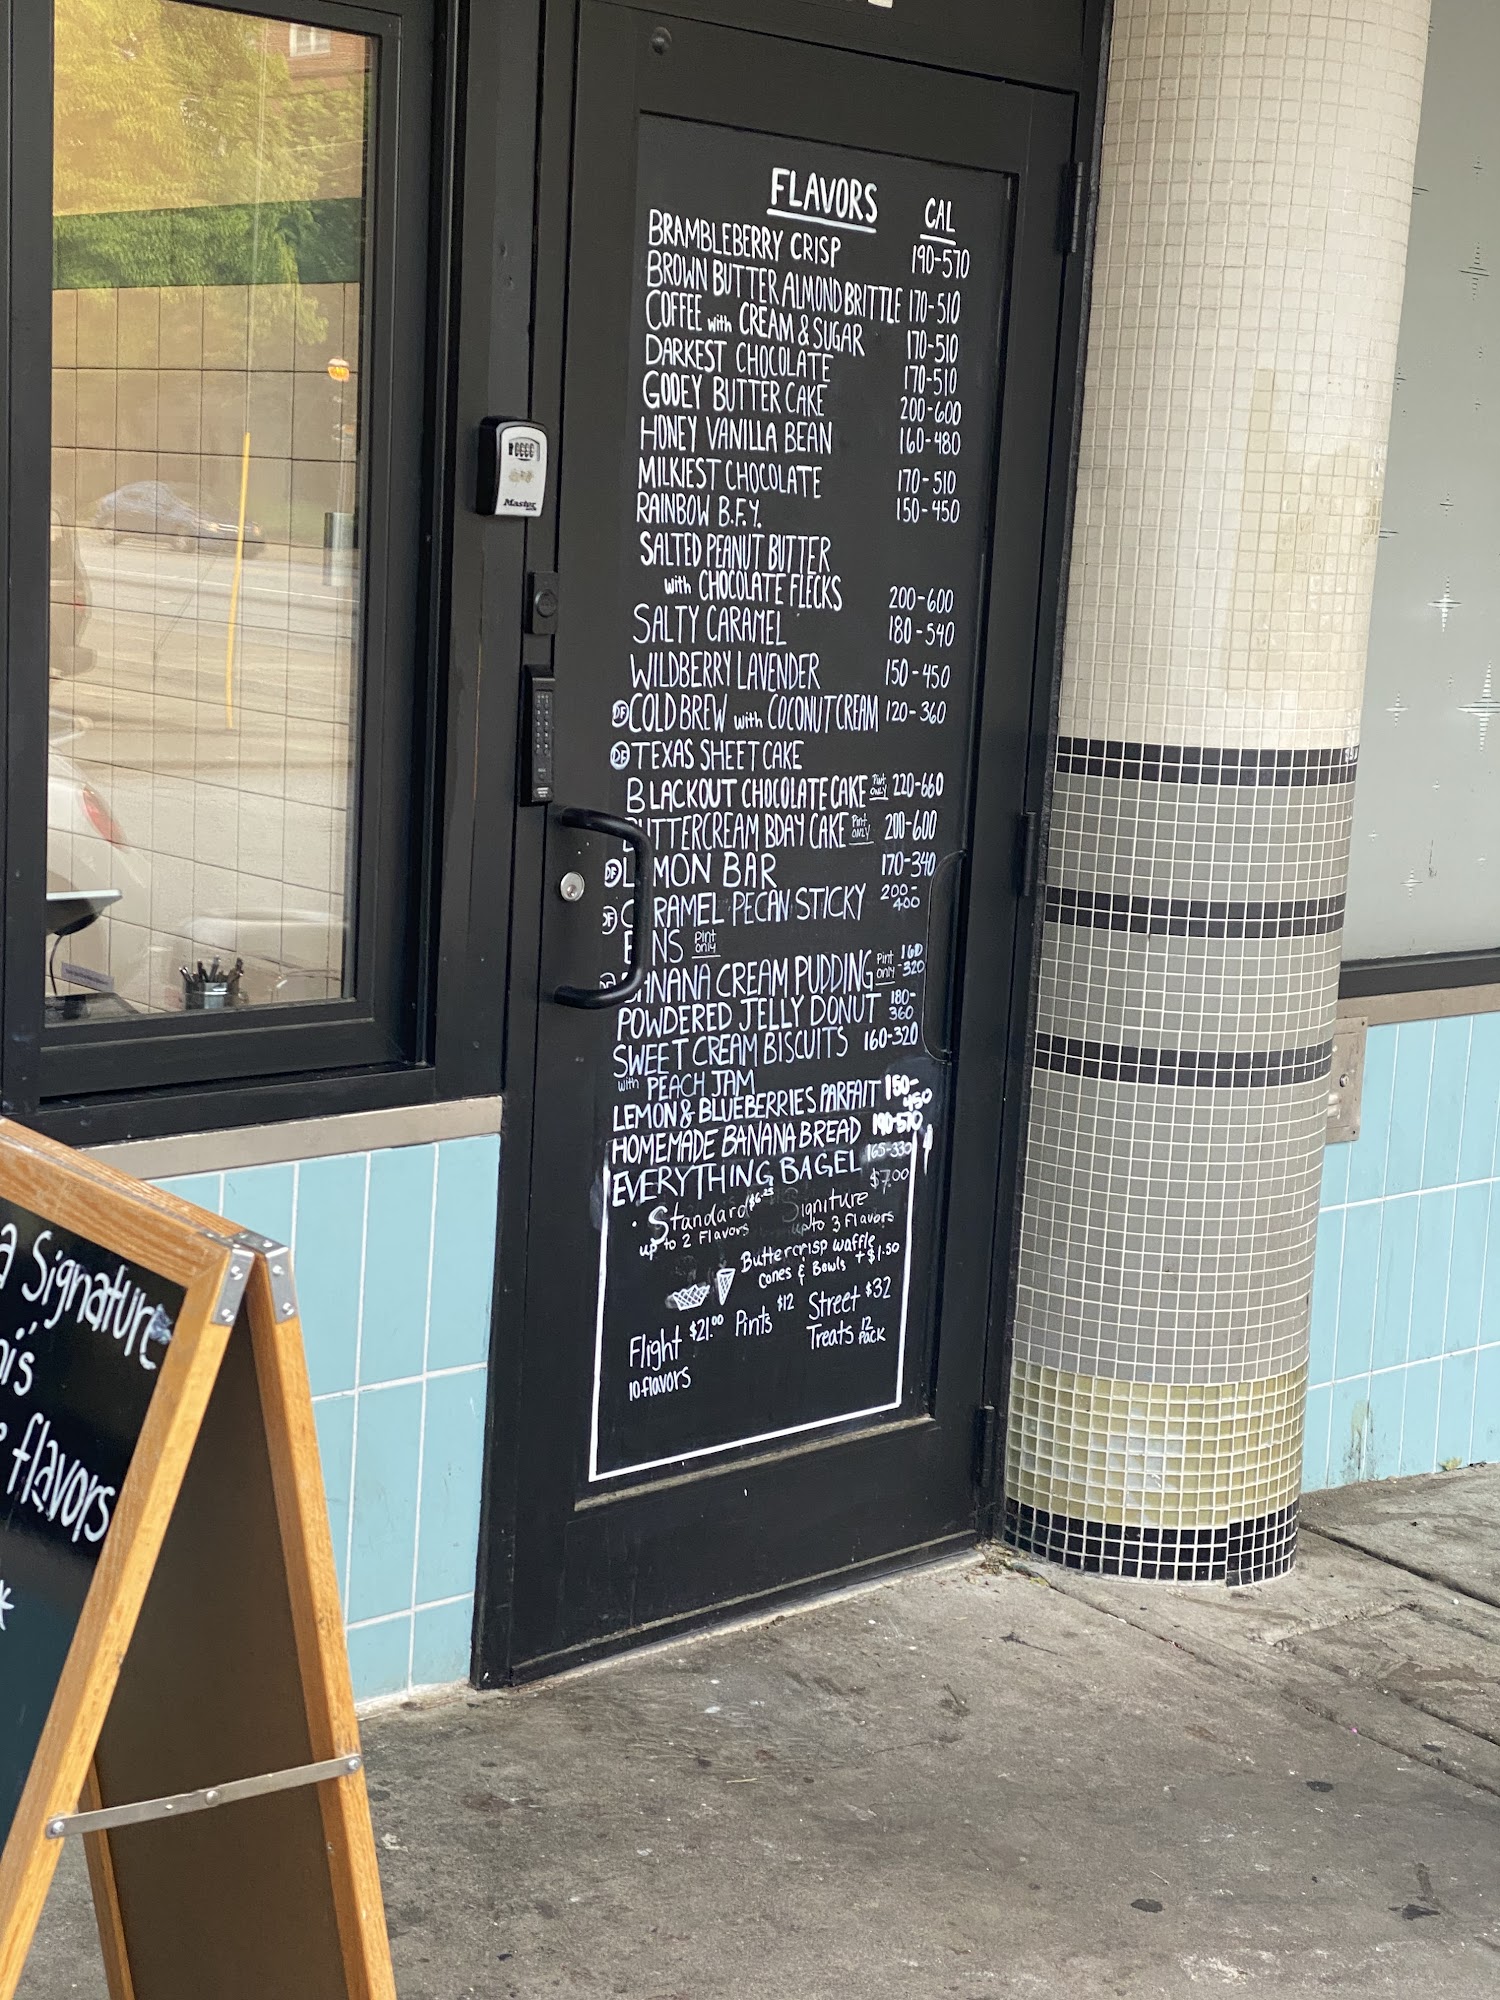 FLAVORS CAL
BRAMBLEBERRY CRISP 190-570
BROWN BUTTER ALMOND BRITTLE 170-510
COFFEE with CREAM & SUGAR 170-510
DARKEST CHOCOLATE 170-510
GOOEY BUTTER CAKE 200-600
HONEY VANILLA BEAN 160-480
MILKIEST CHOCOLATE 170-510
RAINBOW B.F.Y. 150-450
SALTED PEANUT BUTTER
with CHOCOLATE FLECKS 200-600
SALTY CARAMEL 180-540
WILDBERRY LAVENDER 150-450
DF COLD BREW with COCONUT CREAM 120-360
DF TEXAS SHEET CAKE
BLACKOUT CHOCOLATE CAKE Pint ONLY 220-660
BUTTERCREAM BDAY CAKE Pint ONLY 200-600
DF LEMON BAR 170-340
DF CARAMEL PECAN STICKY 200-400
BUNS Pint only
DF BANANA CREAM PUDDING Pint only 160-320
POWDERED JELLY DONUT 180-360
SWEET CREAM BISCUITS 160-320
with PEACH JAM
LEMON & BLUEBERRIES PARFAIT 150-450
HOMEMADE BANANA BREAD 190-570
EVERYTHING BAGEL 165-330
Standard $6.25 Signiture $7.00
up to 2 Flavors up to 3 Flavors
Buttercrisp waffle
cones & Bowls + $1.50
Flight $21.00 Pints $12 Street $32
10 flavors Treats 12 PACK
Master
a Signature
flavors
*